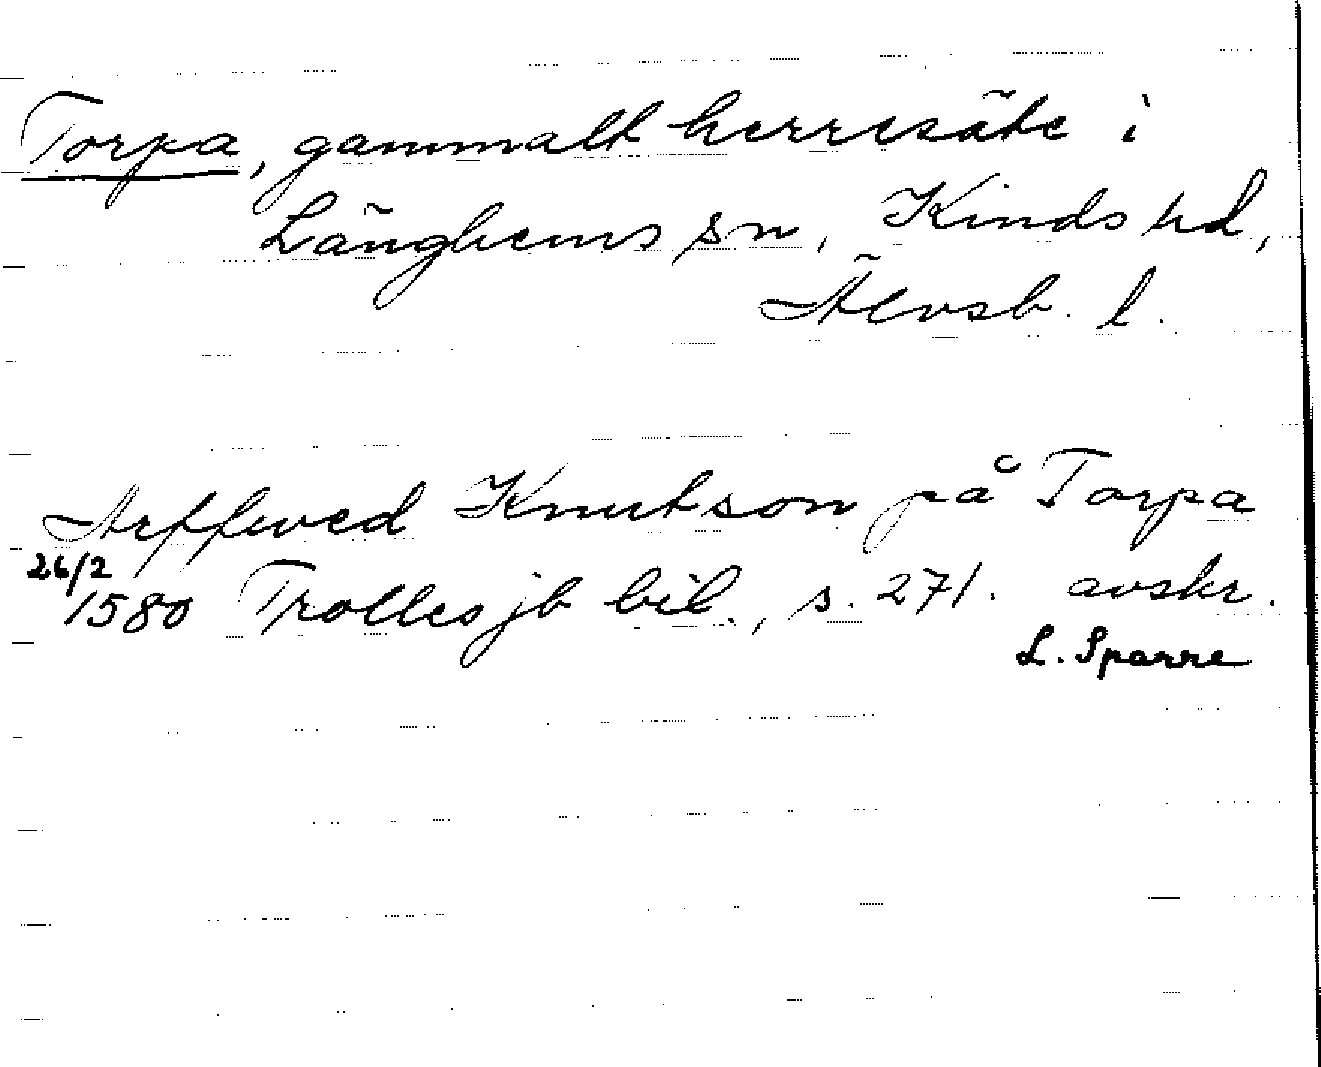 Torpa, gammalt herresäte i
Länghems sn, Kinds hd,
Älvsb. l.
Arffwed Knutson på Torpa
26/2
1580 Trolles jb bil., s. 271. avskr.
L. Sparre